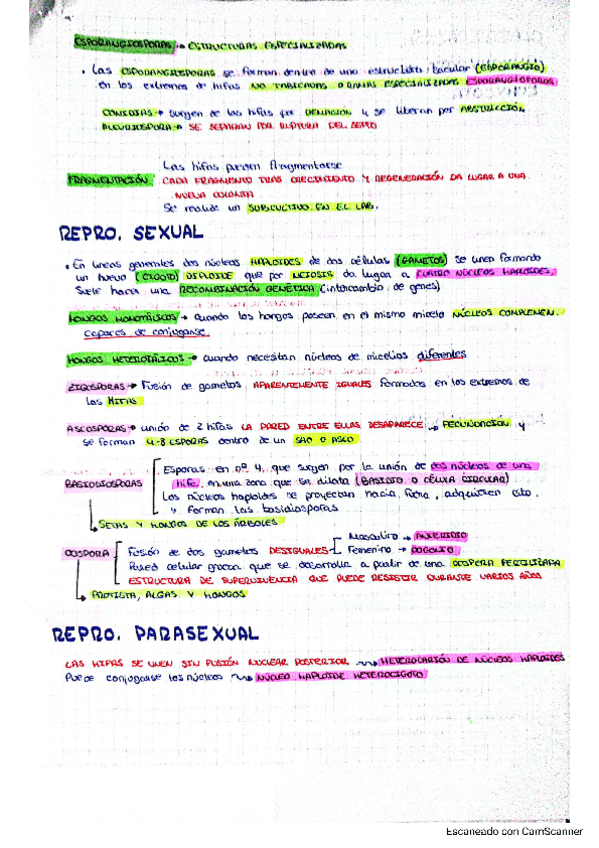 ESPORANGIOSPORAS → ESTRUCTURAS ESPECIALIZADAS
• Las ESPORANGIOSPORAS se forman dentro de una estructura sacular (ESPORANGIO)
en los extremos de hifas NO TABICADAS O RAMAS ESPECIALIZADAS ESPORANGIOFOROS
CONIDIAS → surgen de las hifas por GEMACIÓN y se liberan por ABSTRICCIÓN
ALEURIOSPORA → SE SEPARAN POR RUPTURA DEL SEPTO
Las hifas pueden fragmentarse
FRAGMENTACIÓN CADA FRAGMENTO TRAS CRECIMIENTO Y REGENERACIÓN DA LUGAR A UNA
NUEVA COLONIA
Se realiza un SUBCULTIVO EN EL LAB.
REPRO. SEXUAL
• En líneas generales dos núcleos HAPLOIDES de dos células (GAMETOS) se unen formando
un huevo (CIGOTO) DIPLOIDE que por MEIOSIS da lugar a CUATRO NÚCLEOS HAPLOIDES.
Suele haber una RECOMBINACIÓN GENÉTICA (intercambio de genes)
HONGOS HOMOTÁLICOS → cuando los hongos poseen en el mismo micelio NÚCLEOS COMPLEMEN.
capaces de conjugarse.
HONGOS HETEROTÁLICOS → cuando necesitan núcleos de micelios diferentes
ZIGOSPORAS → Fusión de gametos APARENTEMENTE IGUALES formados en los extremos de
las HIFAS
ASCOSPORAS → unión de 2 hifas LA PARED ENTRE ELLAS DESAPARECE → FECUNDACIÓN y
se forman 4-8 ESPORAS dentro de un SACO O ASCO.
Esporas en nº 4, que surgen por la unión de dos núcleos de una
BASIDIOSPORAS hifa, en una zona que se dilata (BASIDIO O CÉLULA CIRCULAR)
Los núcleos haploides se proyectan hacia fuera, adquieren cito.
y forman las basidiosporas
→ SETAS Y HONGOS DE LOS ÁRBOLES
Masculino → ANTERIDIO
OOSPORA Fusión de dos gametos DESIGUALES Femenino → OOGONIO
Pared celular gruesa que se desarrolla a partir de una OOSFERA FERTILIZADA
ESTRUCTURA DE SUPERVIVENCIA QUE PUEDE RESISTIR DURANTE VARIOS AÑOS
→ PROTISTA, ALGAS Y HONGOS
REPRO. PARASEXUAL
LAS HIFAS SE UNEN SIN FUSIÓN NUCLEAR POSTERIOR → HETEROCARIÓN DE NÚCLEOS HAPLOIDES
Puede conjugarse los núcleos → NÚCLEO HAPLOIDE HETEROCIGOTO
Escaneado con CamScanner